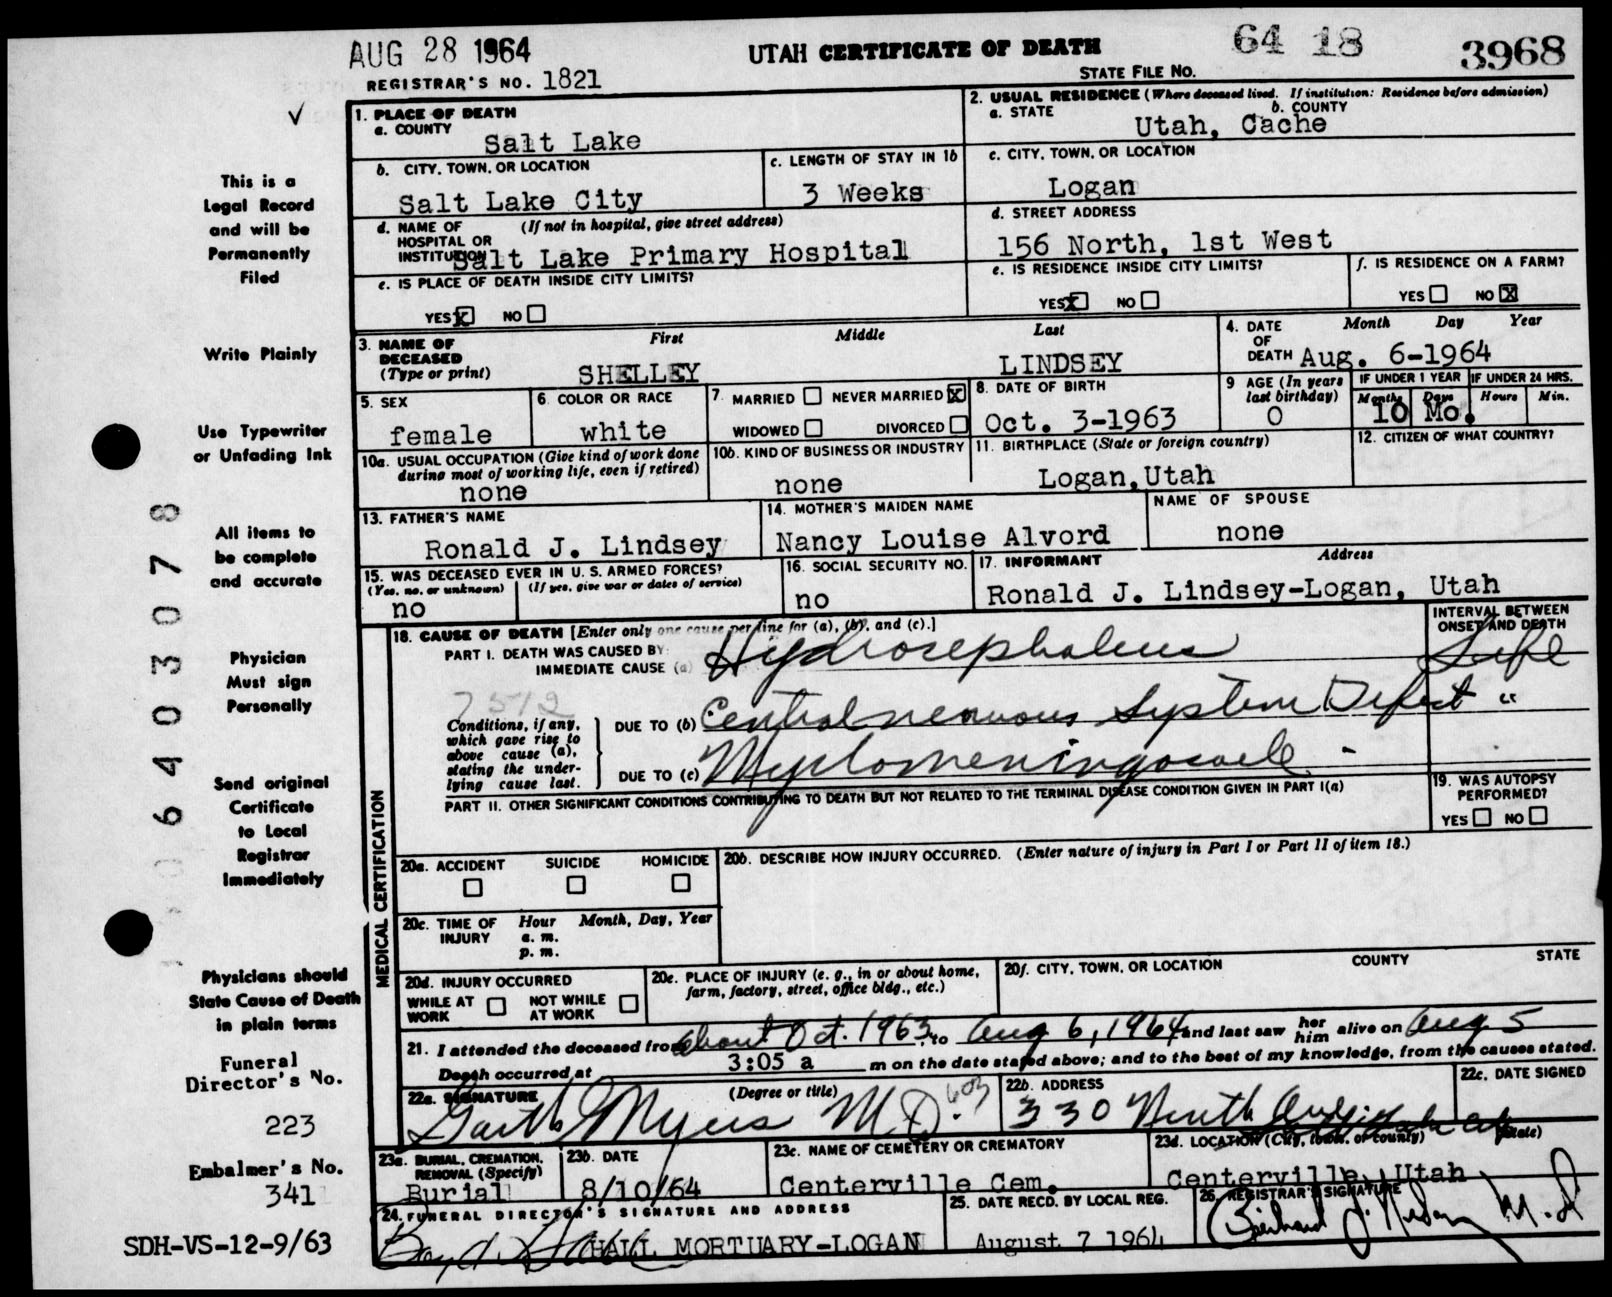 AUG 28 1964
UTAH CERTIFICATE OF DEATH
64 18
3968
REGISTRAR'S NO. 1821
STATE FILE NO.
1. PLACE OF DEATH
a. COUNTY
Salt Lake
2. USUAL RESIDENCE (Where deceased lived. If institution: Residence before admission)
a. STATE b. COUNTY
Utah, Cache
b. CITY, TOWN, OR LOCATION
Salt Lake City
c. LENGTH OF STAY IN 1b
3 Weeks
c. CITY, TOWN, OR LOCATION
Logan
d. NAME OF (If not in hospital, give street address)
HOSPITAL OR
INSTITUTION Salt Lake Primary Hospital
d. STREET ADDRESS
156 North, 1st West
e. IS PLACE OF DEATH INSIDE CITY LIMITS?
YES X NO
e. IS RESIDENCE INSIDE CITY LIMITS?
YES X NO
f. IS RESIDENCE ON A FARM?
YES NO X
3. NAME OF
DECEASED
(Type or print)
First Middle Last
SHELLEY LINDSEY
4. DATE
OF
DEATH
Month Day Year
Aug. 6-1964
5. SEX
female
6. COLOR OR RACE
white
7. MARRIED NEVER MARRIED X
WIDOWED DIVORCED
8. DATE OF BIRTH
Oct. 3-1963
9 AGE (In years
last birthday)
0
IF UNDER 1 YEAR IF UNDER 24 HRS.
Months Days Hours Min.
10 Mo.
10a. USUAL OCCUPATION (Give kind of work done
during most of working life, even if retired)
none
10b. KIND OF BUSINESS OR INDUSTRY
none
11. BIRTHPLACE (State or foreign country)
Logan, Utah
12. CITIZEN OF WHAT COUNTRY?
13. FATHER'S NAME
Ronald J. Lindsey
14. MOTHER'S MAIDEN NAME
Nancy Louise Alvord
NAME OF SPOUSE
none
15. WAS DECEASED EVER IN U. S. ARMED FORCES?
(Yes, no, or unknown) (If yes, give war or dates of service)
no
16. SOCIAL SECURITY NO.
no
17. INFORMANT Address
Ronald J. Lindsey-Logan, Utah
18. CAUSE OF DEATH [Enter only one cause per line for (a), (b), and (c).]
INTERVAL BETWEEN
ONSET AND DEATH
PART I. DEATH WAS CAUSED BY:
IMMEDIATE CAUSE (a) Hydrocephalus Life
7512
Conditions, if any,
which gave rise to
above cause (a),
stating the under-
lying cause last.
DUE TO (b) Central nervous System Defect "
DUE TO (c) Myelomeningocele -
PART II. OTHER SIGNIFICANT CONDITIONS CONTRIBUTING TO DEATH BUT NOT RELATED TO THE TERMINAL DISEASE CONDITION GIVEN IN PART I(a)
19. WAS AUTOPSY
PERFORMED?
YES NO
MEDICAL CERTIFICATION
20a. ACCIDENT SUICIDE HOMICIDE
20b. DESCRIBE HOW INJURY OCCURRED. (Enter nature of injury in Part I or Part II of item 18.)
20c. TIME OF
INJURY
Hour Month, Day, Year
a. m.
p. m.
20d. INJURY OCCURRED
WHILE AT
WORK
NOT WHILE
AT WORK
20e. PLACE OF INJURY (e. g., in or about home,
farm, factory, street, office bldg., etc.)
20f. CITY, TOWN, OR LOCATION COUNTY STATE
21. I attended the deceased from about Oct. 1963, to Aug 6, 1964 and last saw her him alive on Aug 5
Death occurred at 3:05 a m on the date stated above; and to the best of my knowledge, from the causes stated.
22a. SIGNATURE (Degree or title)
Garth G Myers M.D. 603
22b. ADDRESS
330 North
22c. DATE SIGNED
23a. BURIAL, CREMATION,
REMOVAL (Specify)
Burial
23b. DATE
8/10/64
23c. NAME OF CEMETERY OR CREMATORY
Centerville Cem.
23d. LOCATION (City, town, or county) (State)
Centerville, Utah
24. FUNERAL DIRECTOR'S SIGNATURE AND ADDRESS
HALL MORTUARY-LOGAN
25. DATE RECD. BY LOCAL REG.
August 7 1964
26. REGISTRAR'S SIGNATURE
M.D
This is a
Legal Record
and will be
Permanently
Filed
Write Plainly
Use Typewriter
or Unfading Ink
All items to
be complete
and accurate
Physician
Must sign
Personally
Send original
Certificate
to Local
Registrar
Immediately
Physicians should
State Cause of Death
in plain terms
Funeral
Director's No.
223
Embalmer's No.
341
SDH-VS-12-9/63